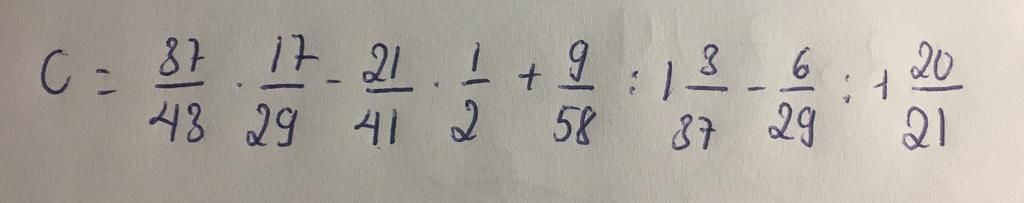 C = 37/43 · 17/29 - 21/41 · 1/2 + 9/58 : 1 3/37 - 6/29 : 1 20/21